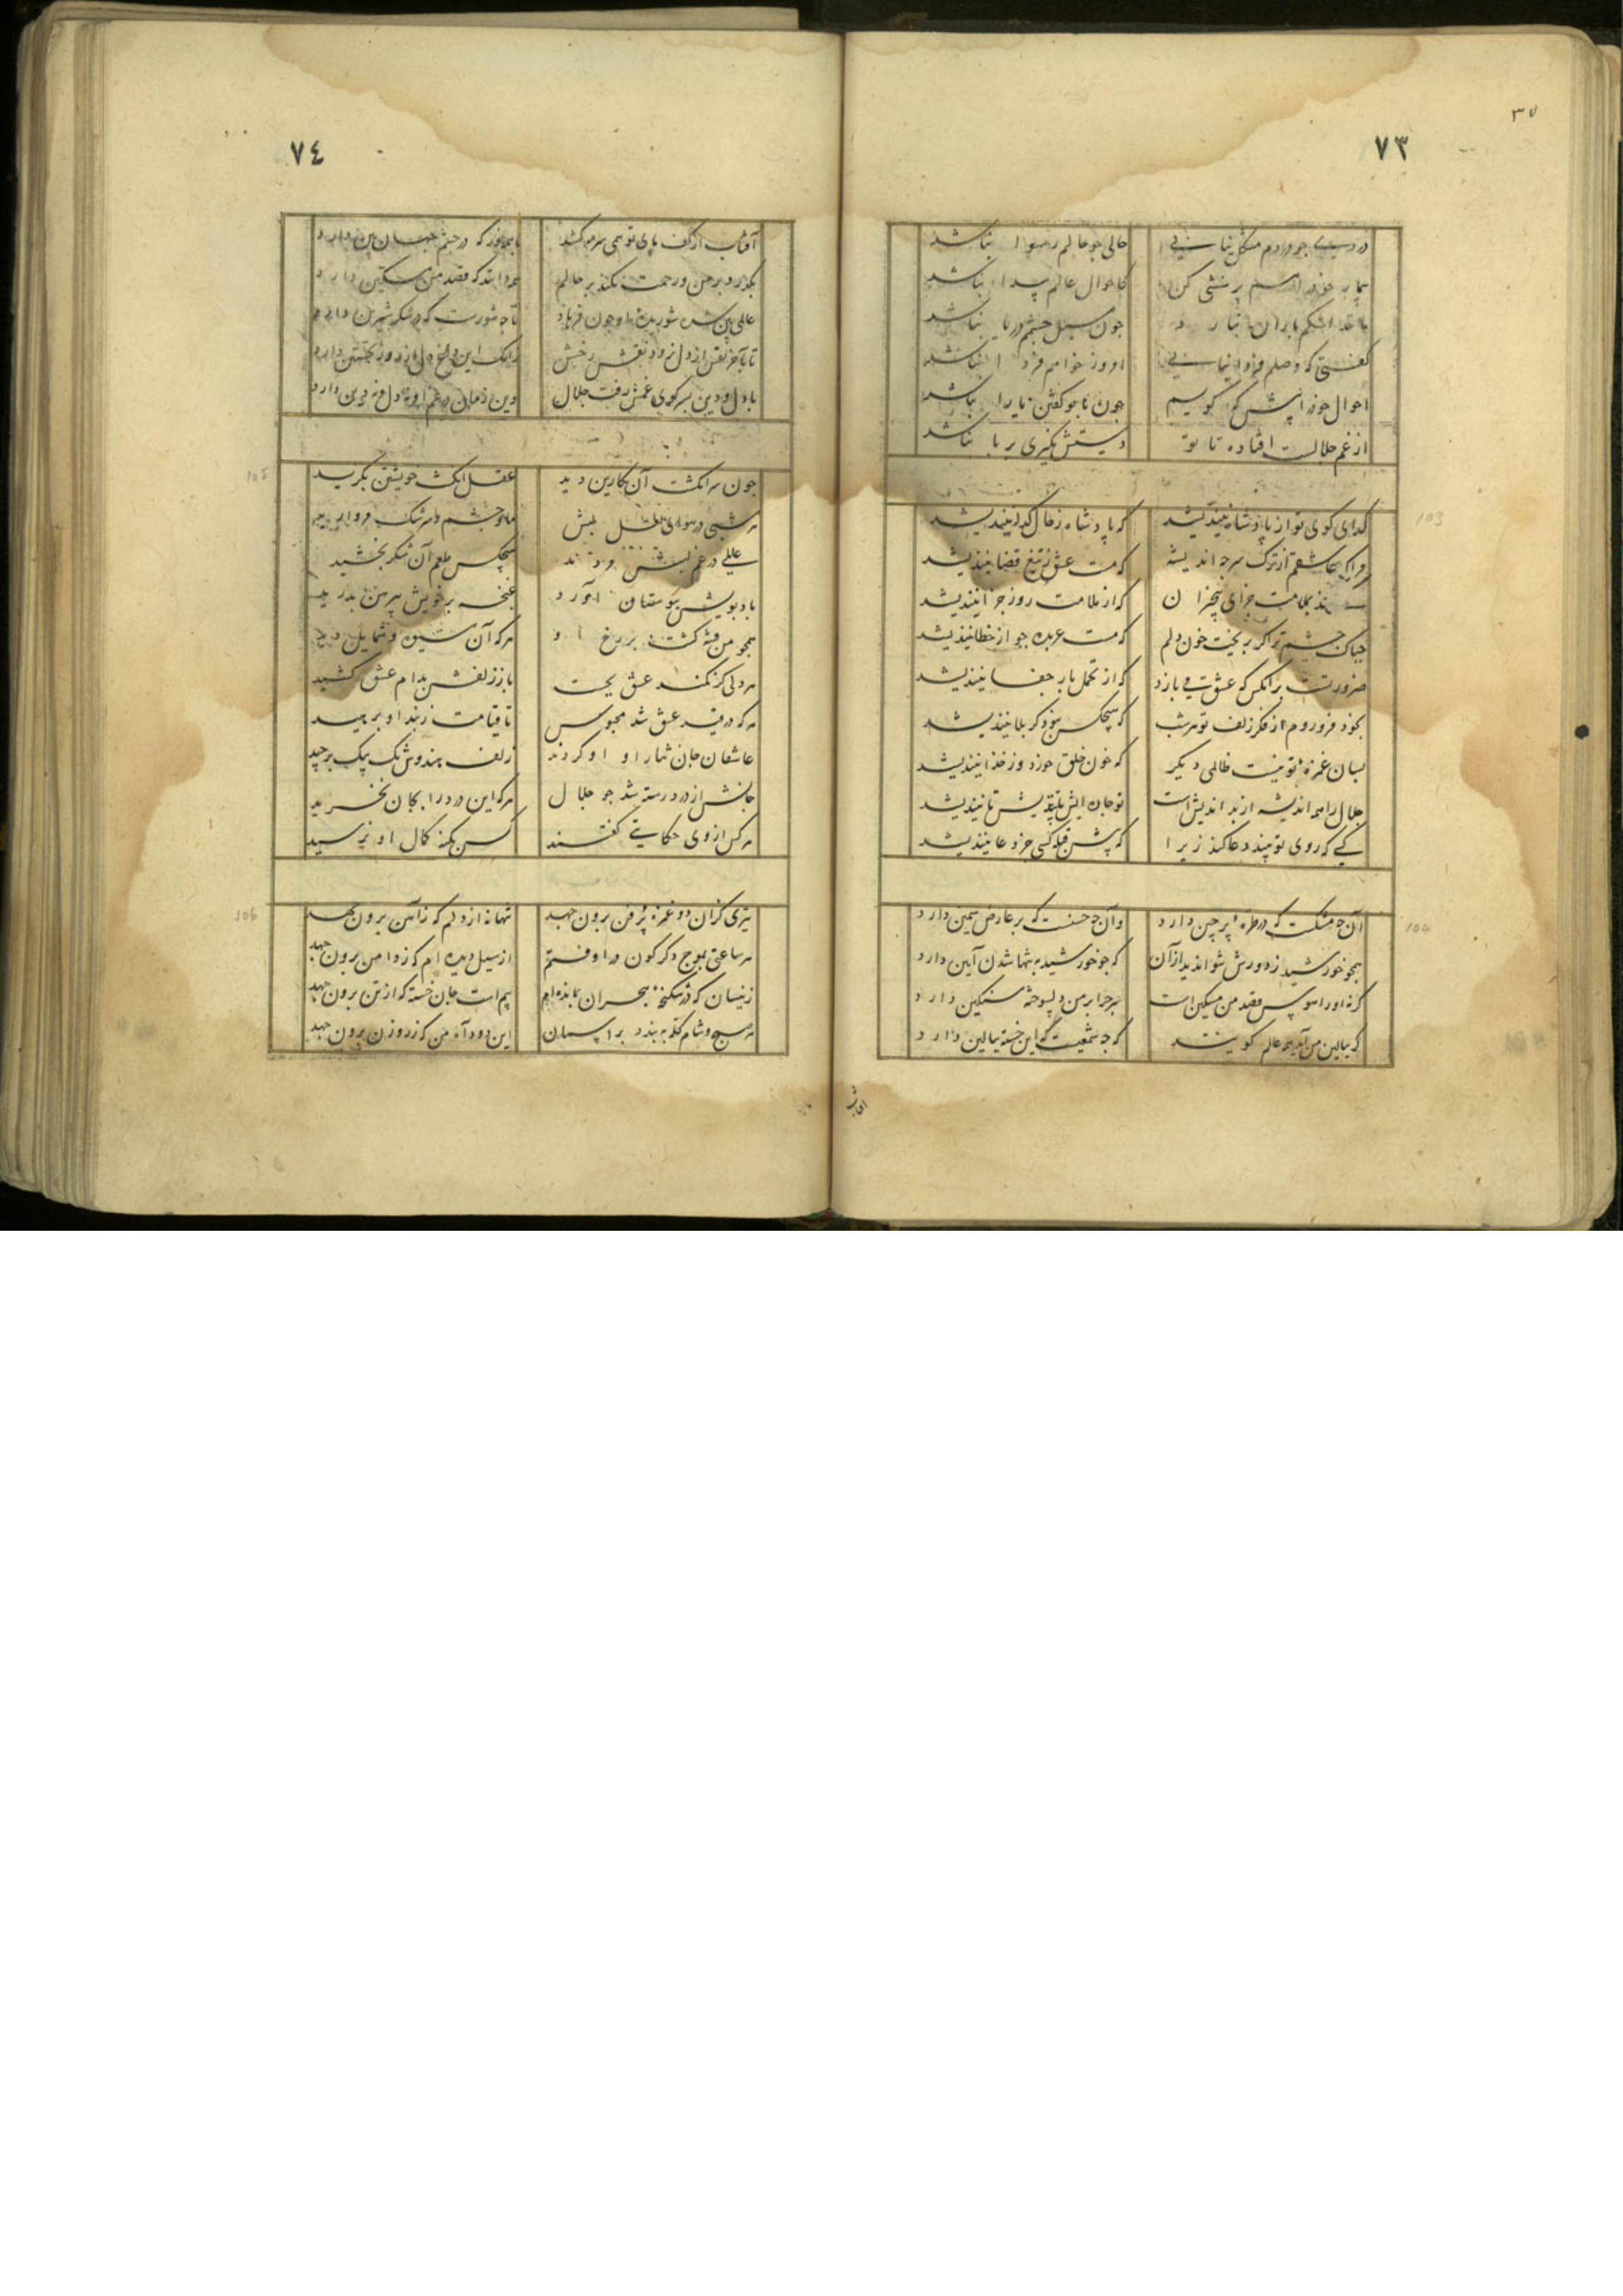 ٣٧
٧٣
دردی جو دردم مشکل نباشد حالی جو حالم رسوا نباشد
بیمار خود را پرسشی کن کاحوال عالم پیدا نباشد
اشکم باران نبارد جون سیل جشمم دریا نباشد
کفتی که وصلم فردا نمایی امروز خواهم فردا نباشد
احوال خود را پیش که کویم جون با تو کفتن یارا نباشد
از غم جلالست افتاده تا تو دستش نکیری بر پا نباشد
103
کدای کوی تو از پادشاه نیندیشد که پادشاه ز حال کدا نیندیشد
عاشقم از ترک سر جه اندیشد که مست عشق ز تیغ قضا نیندیشد
بملامت جزای بیخبران که از ملامت روز جزا نیندیشد
جه باک جشم ترا کر بریخت خون دلم که مست عربده جو از خطا نیندیشد
ضرورتست بر انکس که عشق می بازد که از تحمل بار جفا نیندیشد
بخود فرو روم از فکر زلف تو هر شب که هیجکس بخود کر بلا نیندیشد
بسان غمزه تو نیست ظالمی دیکر که خون خلق خورد وز خدا نیندیشد
جلال را همه اندیشه از بد اندیش است تو جان
کسی که روی تو بیند دعا کند زیرا که پیش قبله کسی جز دعا نیندیشد
104
آن جه مشکست که در طره پر جین دارد وان جه حسنست که بر عارض سیمین دارد
همجو خورشید ز دورش نتواند دید از آن که جو خورشید به تنها شدن آیین دارد
کر نه او را هوس قصد من مسکین است بر جرا بر من دلسوخته سنکین دارد
که ببالین من آید همه عالم کویند که جه شمعیست که این خسته ببالین دارد
افتاب
٧٤
آفتاب از کف پای تو همی سرمه کشد تا جهان که در جشم جهان بین دارد
بکذرد بر من و رحمت نکند بر حالم همه دانند که قصد من مسکین دارد
عالمی شوریده او جون فرهاد تا جه شورست که در شکر شیرین دارد
تا بآخر نفس از دل نرود نقش رخش زانک این داغ دل از روز نخستین دارد
با دل و دین بسر کوی غمش رفت جلال وین زمان در غم او نه دل و نه دین دارد
105
جون سر انکشت آن نکارین دید عقل انکشت خویشتن بکزید
هر شبی در هوای لعل لبش ماه و جشم و سرشک مروارید
عالمی در غم لبش مردند هیجکس طعم آن شکر نجشید
باد بویش ببوستان آورد غنجه بر خویش پیرهن بدرید
همجو من فتنه کشت بر رخ او هر که آن شیوه و شمایل دید
هر دلی کز کمند عشق بجست باز زلفش بدام عشق کشید
هر که در قید عشق شد محبوس تا قیامت ز بند او نرهید
عاشقان جان نثار او کردند زلف هندوش یک بیک برجید
جانش از درد رسته شد جو جلال هر که این درد را بجان بخرید
هر کس از وی حکایتی کفتند کس بکنه کمال او نرسید
106
تیری کزان دو غمزه پر فن برون جهد تنها نه از دلم که ز آهن برون جهد
هر ساعتی بموج دکر کون در اوفتم از سیل دیده ام که ز دامن برون جهد
زینسان که در شکنجه هجران بمانده ام بیم است جان خسته که از تن برون جهد
هر صبح و شام کله ببندد بر آسمان این دود آه من که ز روزن برون جهد